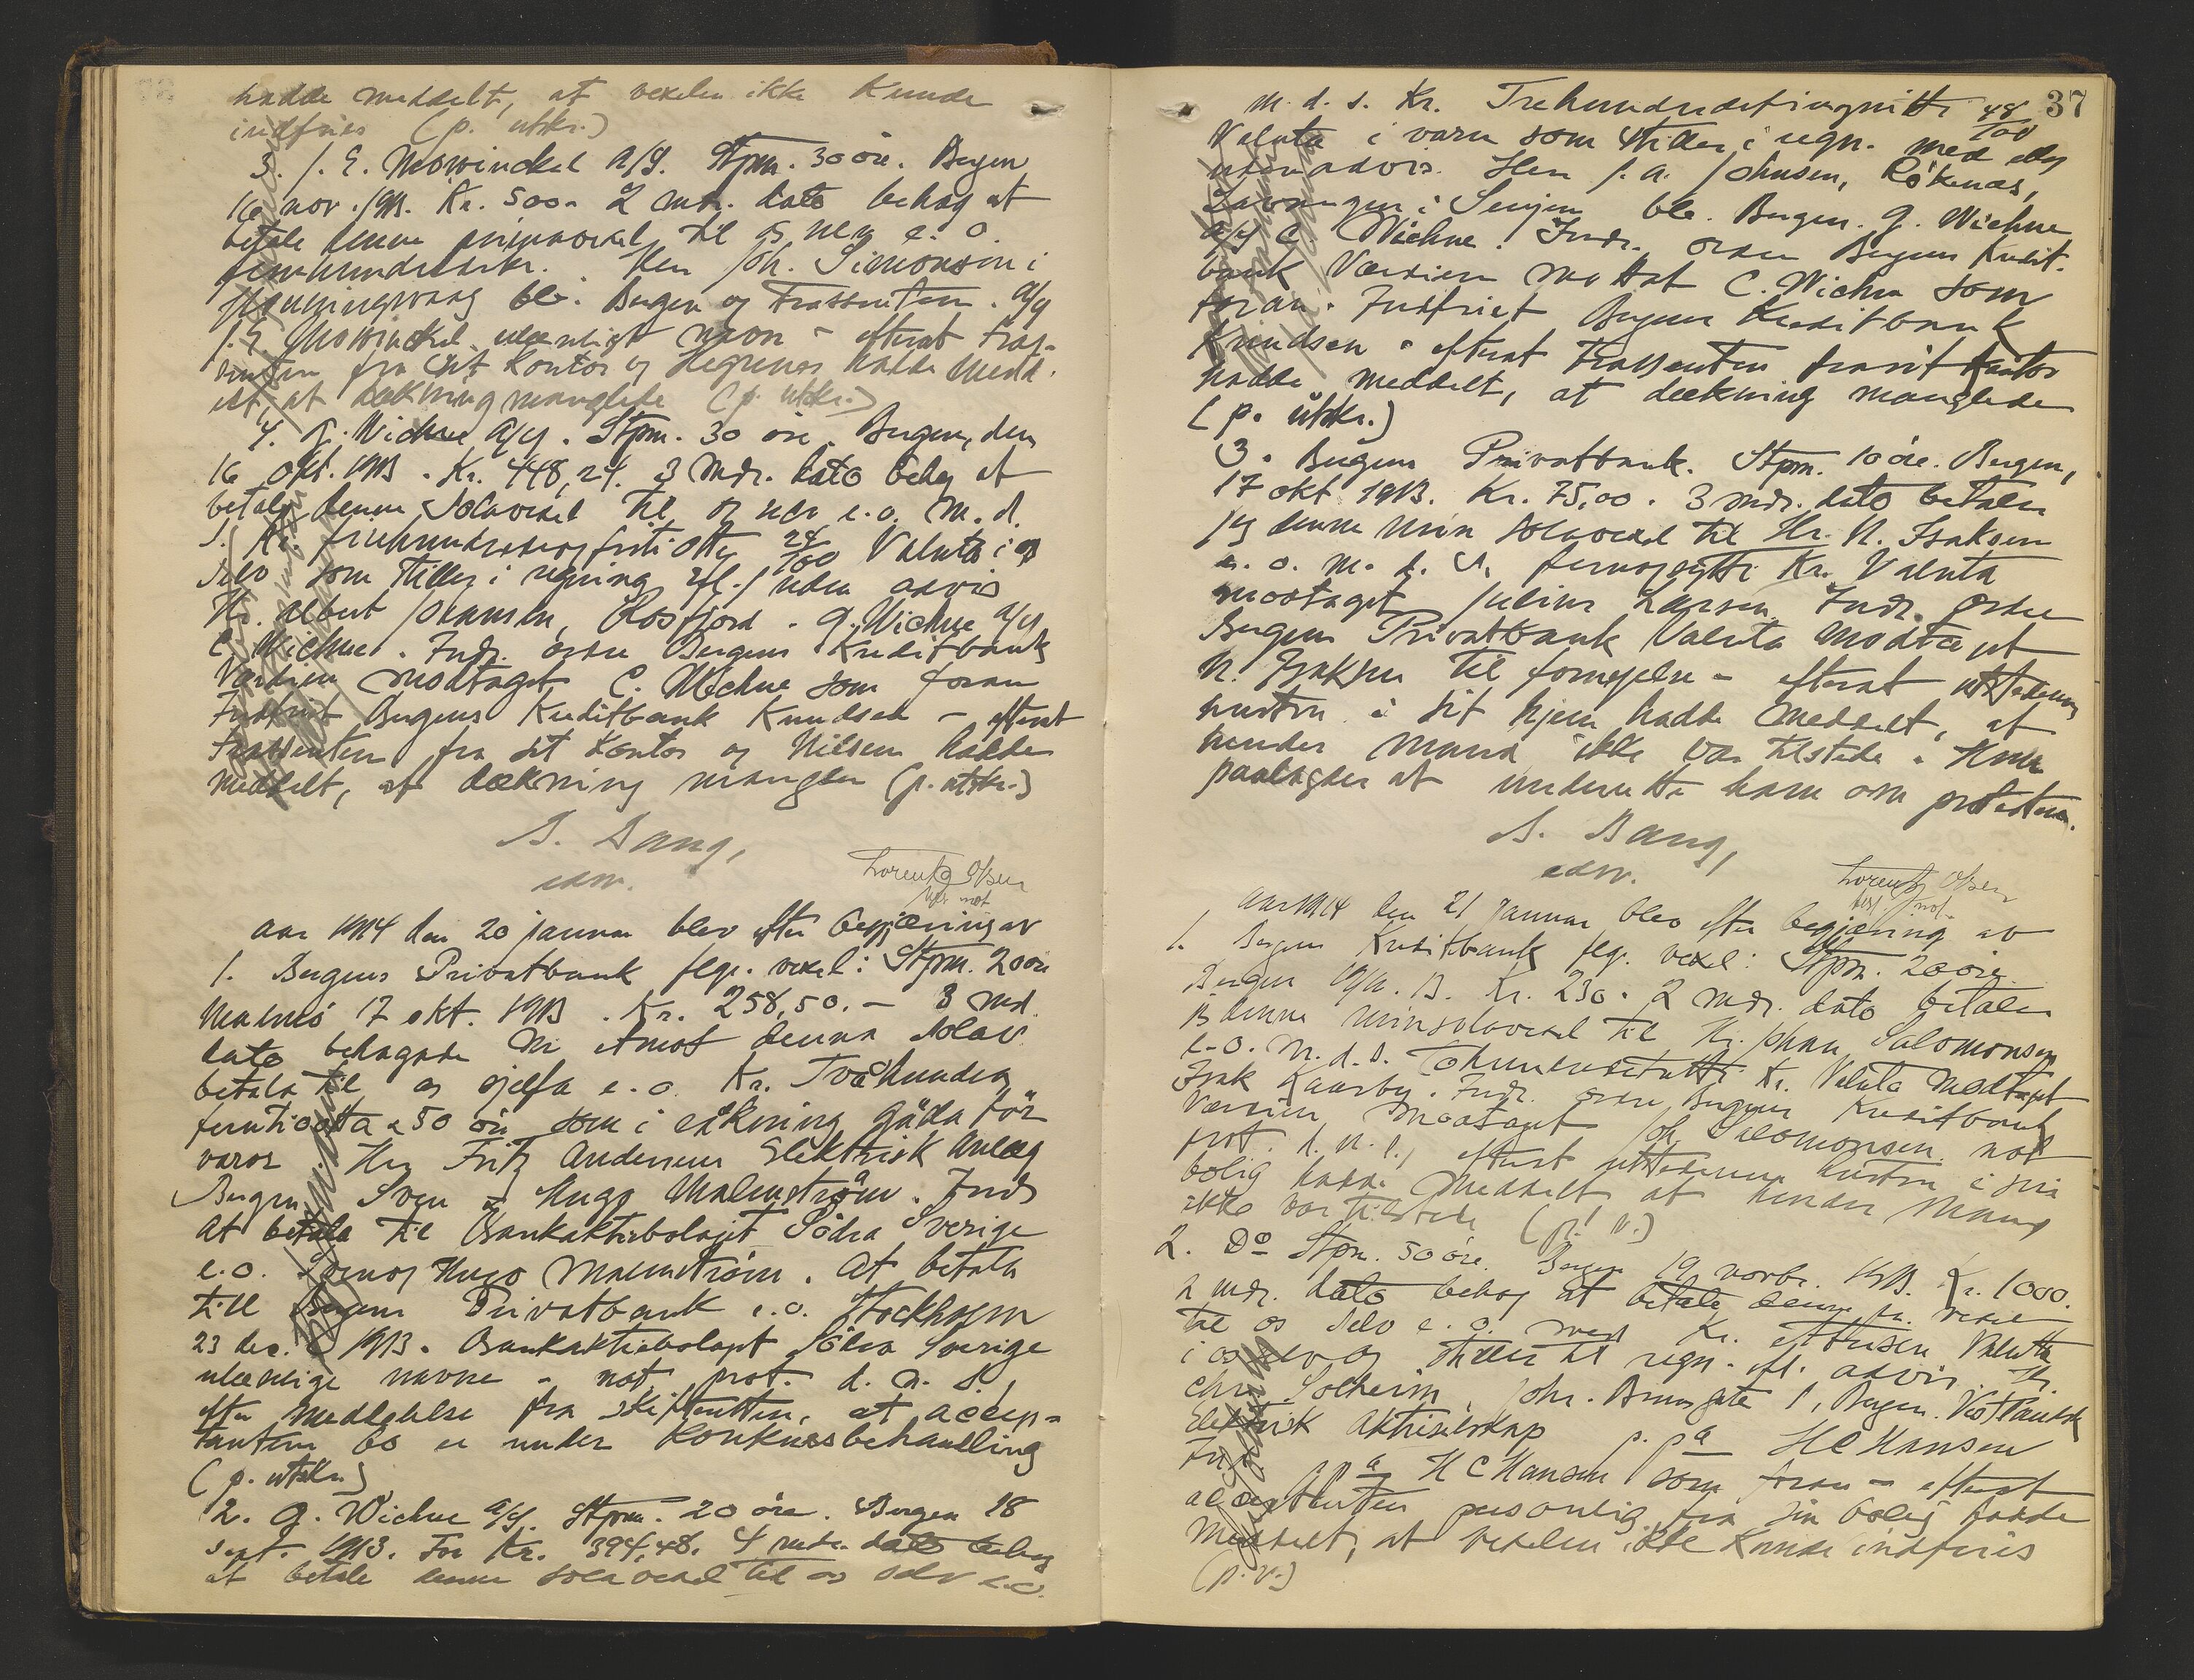 hadde meddelt, at vexelen ikke kunde
indfries (p. utkr.)
3. J. E. Mowinckel A/S. Stpm. 30 öre. Bergen
16 nov. 1913. Kr. 500.- 2 mdr. dato behag at
betale denne primavexel til os selv e. o.
femhundredekr. Herr Joh. Simonsen i
blv. Bergen og Trassenten. A/S
J. E. Mowinckel ulæseligt navn - efterat Tras-
senten fra sit kontor og Hegrenes hadde medd-
elt, at dækning manglede (p. utkr.)
4. G. Wichne A/S. Stpm. 30 öre. Bergen, den
16 okt. 1913. Kr. 448,24. 3 mdr. dato behag at
betale denne solavexel til os selv e. o. m. d.
s. Kr. firehundredeogfirtiotte 24/100 Valuta i os
selv som stilles i regning efl. / uden advis
Hr. Albert Johansen, Rosfjord. G. Wichne A/S
C. Wichne. Indr. ordre Bergens Kreditbank
Værdien modtaget C. Wichne som foran
Indfriet Bergens Kreditbank Knudsen - efterat
Trassenten fra sit kontor og Nilsen hadde
meddelt, at dækning mangler (p. utkr.)
S. Bang,
edsv.
Lorentz Olsen
not
Aar 1914 den 20 januar blev efter begjæring av
1. Bergens Privatbank flg. vexel: Stpm. 20 öre
Malmö 17 okt. 1913. Kr. 258,50.- 3 md.
dato behagade Ni emot denna sola
betala til os sjelfa e. o. Kr. Tvåhundra
femtioåtta & 50 öre som i räkning gälda för
varor Herr Fritz Andersens Elektrisk Anlæg
Bergen Sven & Hugo Malmström. Indr
At betala til Bankaktiebolaget Södra Sverige
e. o. Sven & Hugo Malmström. At betala
till Bergens Privatbank e. o. Stockholm
23 dec. 1913. Bankaktiebolaget Södra Sverige
ulæselige navne - not. prot. d. n. s.,
efter meddelelse fra skifteretten, at accep-
tantens bo er under konkursbehandling
(p. utskr.)
2. G. Wichne A/S. Stpm. 20 öre. Bergen 18
sept. 1913. For Kr. 394,48. 4 mdr. dato behag
at betale denne solavexel til os selv e.o.
37
m. d. s. Kr. Trehundredefireognitti 48/100
Valuta i varer som stilles i regn. med eller
uten advis. Herr J. A. Johnsen, Röknes,
i Senjen blv. Bergen. G. Wichne
A/S C. Wichne. Indr. ordre Bergens Kredit-
bank Værdien mottat C. Wichne som
foran. Indfriet Bergens Kreditbank
Knudsen - efterat Trassenten fra sit kontor
hadde meddelt, at dækning manglede
(p. utkr.)
3. Bergens Privatbank. Stpm. 10 öre. Bergen,
17 okt 1913. Kr. 75,00. 3 mdr. dato betaler
jeg denne min solavexel til Hr. N. Isaksen
e. o. m. d. s. femogsytti Kr. Valuta
modtaget Julius Larsen Indr. ordre
Bergens Privatbank Valuta modtaget
N. Isaksen til fornyelse - efterat utstederens
hustru i sit hjem hadde meddelt, at
hendes mand ikke var tilstede. Hun
paalagdes at underrette ham om protesten.
S. Bang,
edsv.
Lorentz Olsen
not.
Aar 1914 den 21 januar blev efter begjæring av
1. Bergens Kreditbank flg. vexel: Stpm. 20 öre
Bergen 19/11. 13. Kr. 230. 2 mdr. dato betaler
jeg denne min solavexel til Hr. Johan Salomonsen
e. o. m. d. s. Tohundredetretti Kr. Valuta modtaget
Isak Kaarby. Indr. ordre Bergens Kreditbank
Værdien modtaget Joh. Salomonsen not
prot. d. n. s., efterat utstederens hustru i sin
bolig hadde meddelt at hendes mand
ikke var tilstede (p. v.)
2. Do Stpm. 50 öre. Bergen 19 novbr. 1913. Kr. 1000.
2 mdr. dato behag at betale denne pr. vexel
til os selv e. o. med Kr. ettusen Valuta
i os selv og stilles til regn. efl. advis. Hr.
Chr. Solheim, Johs. Brunsgate 1, Bergen.
Elektrisk Aktieselskap p. pa H C Hansen
p. pa H C Hansen som foran - efterat
acceptanten personlig fra sin bolig hadde
meddelt, at vexelen ikke kunde indfries
(p. v.)